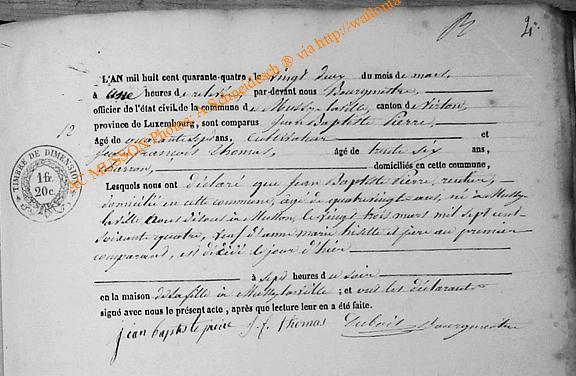 2i
L'AN mil huit cent quarante-quatre, le vingt deux du mois de mars,
à une heures de relevée par-devant nous Bourgmestre
officier de l'état civil de la commune de Mussy-la-ville, canton de Virton,
province de Luxembourg, sont comparus Jean Baptiste Pierre,
âgé de quarante sept ans, Cultivateur et
Jean François Thomas, âgé de trente six ans,
domiciliés en cette commune,
Lesquels nous ont déclaré que Jean Baptiste Pierre, rentier,
domicilié en cette commune, âgé de quatre vingts ans, né à Mussy
la ville le vingt trois mars mil sept cent
soixante quatre, veuf d'anne marie et père au premier
comparant, est décédé le jour d'hier
à sept heures du soir
en la maison de sa fille à Mussy la ville ; et ont les déclarants
signé avec nous le présent acte, après que lecture leur en a été faite.
jean baptiste pierre J. f. thomas Dubois Bourgmestre
TIMBRE DE DIMENSION
1 fr.
20 c.
AC MUSSON Photos: A Schneidesch ® via http://wallonia